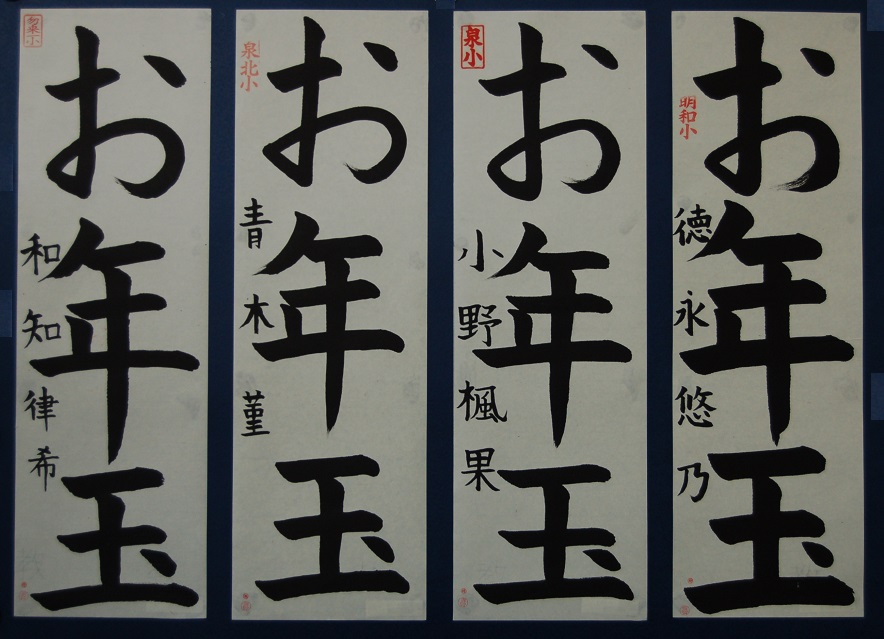 お年玉
明和小
徳永悠乃
お年玉
泉小
小野楓果
お年玉
泉北小
青木菫
お年玉
和知律希